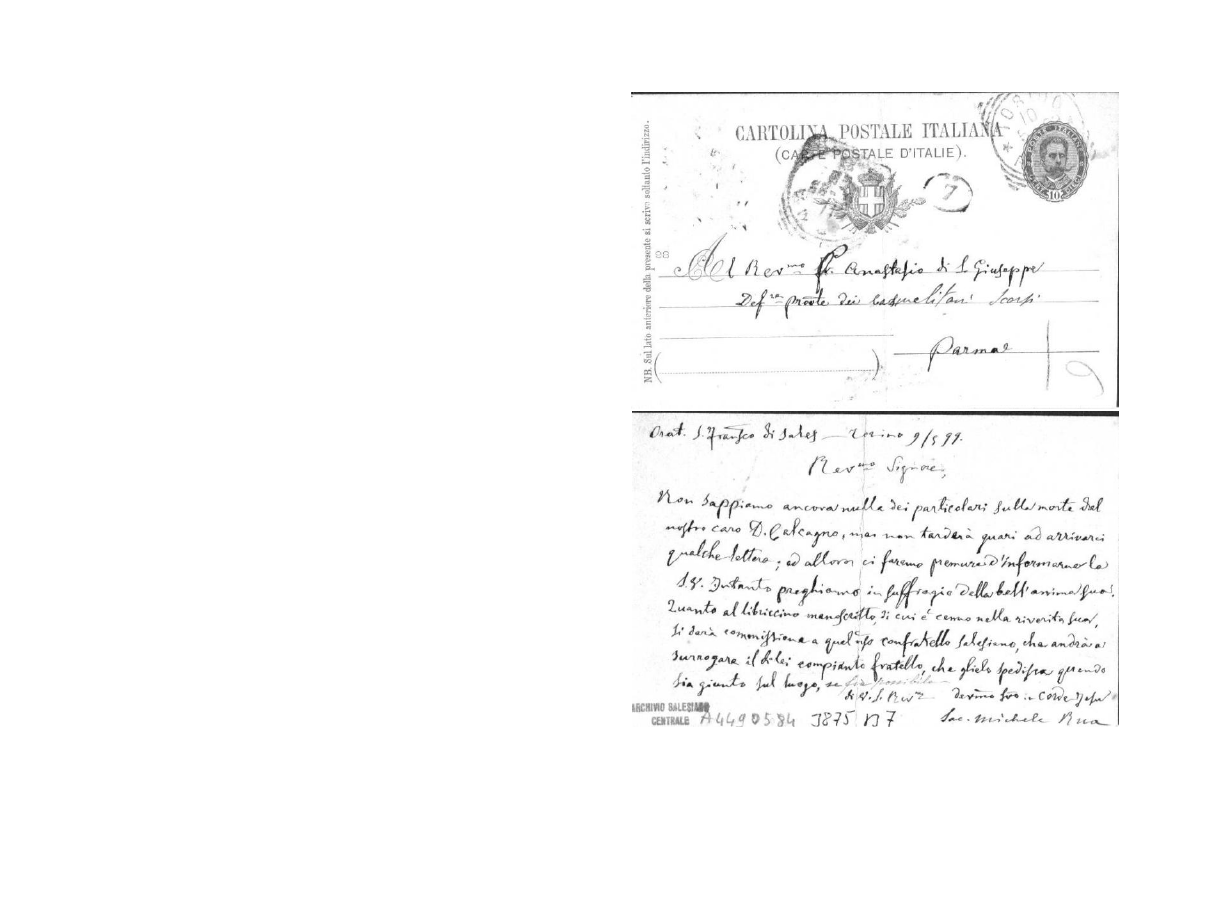 NB. Sul lato anteriore della presente si scrive soltanto l'indirizzo.
CARTOLINA POSTALE ITALIANA
(CARTE POSTALE D'ITALIE).
7
10
Al Rev.mo P. Anastasio di S. Giuseppe
Def.re prov.le dei Carmelitani Scalzi
Parma
9
Orat. S. Fran.sco di Sales — Torino 9/5 99.
Rev.mo Signore,
Non sappiamo ancora nulla dei particolari sulla morte del
nostro caro D. Calcagno, ma non tarderà guari ad arrivarci
qualche lettera; ed allora ci faremo premura d'informarne la
S.V. Intanto preghiamo in suffragio della bell'anima sua.
Quanto al libriccino manoscritto, di cui è cenno nella riverita sua,
si darà commissione a quel confratello Salesiano, che andrà a
surrogare il di lei compianto fratello, che glielo spedisca quando
sia giunto sul luogo, se sia possibile
di V. S. Rev.ma dev.mo suo in Corde Jesu
Sac. Michele Rua
ARCHIVIO SALESIANO
CENTRALE A4490584 3875 B7